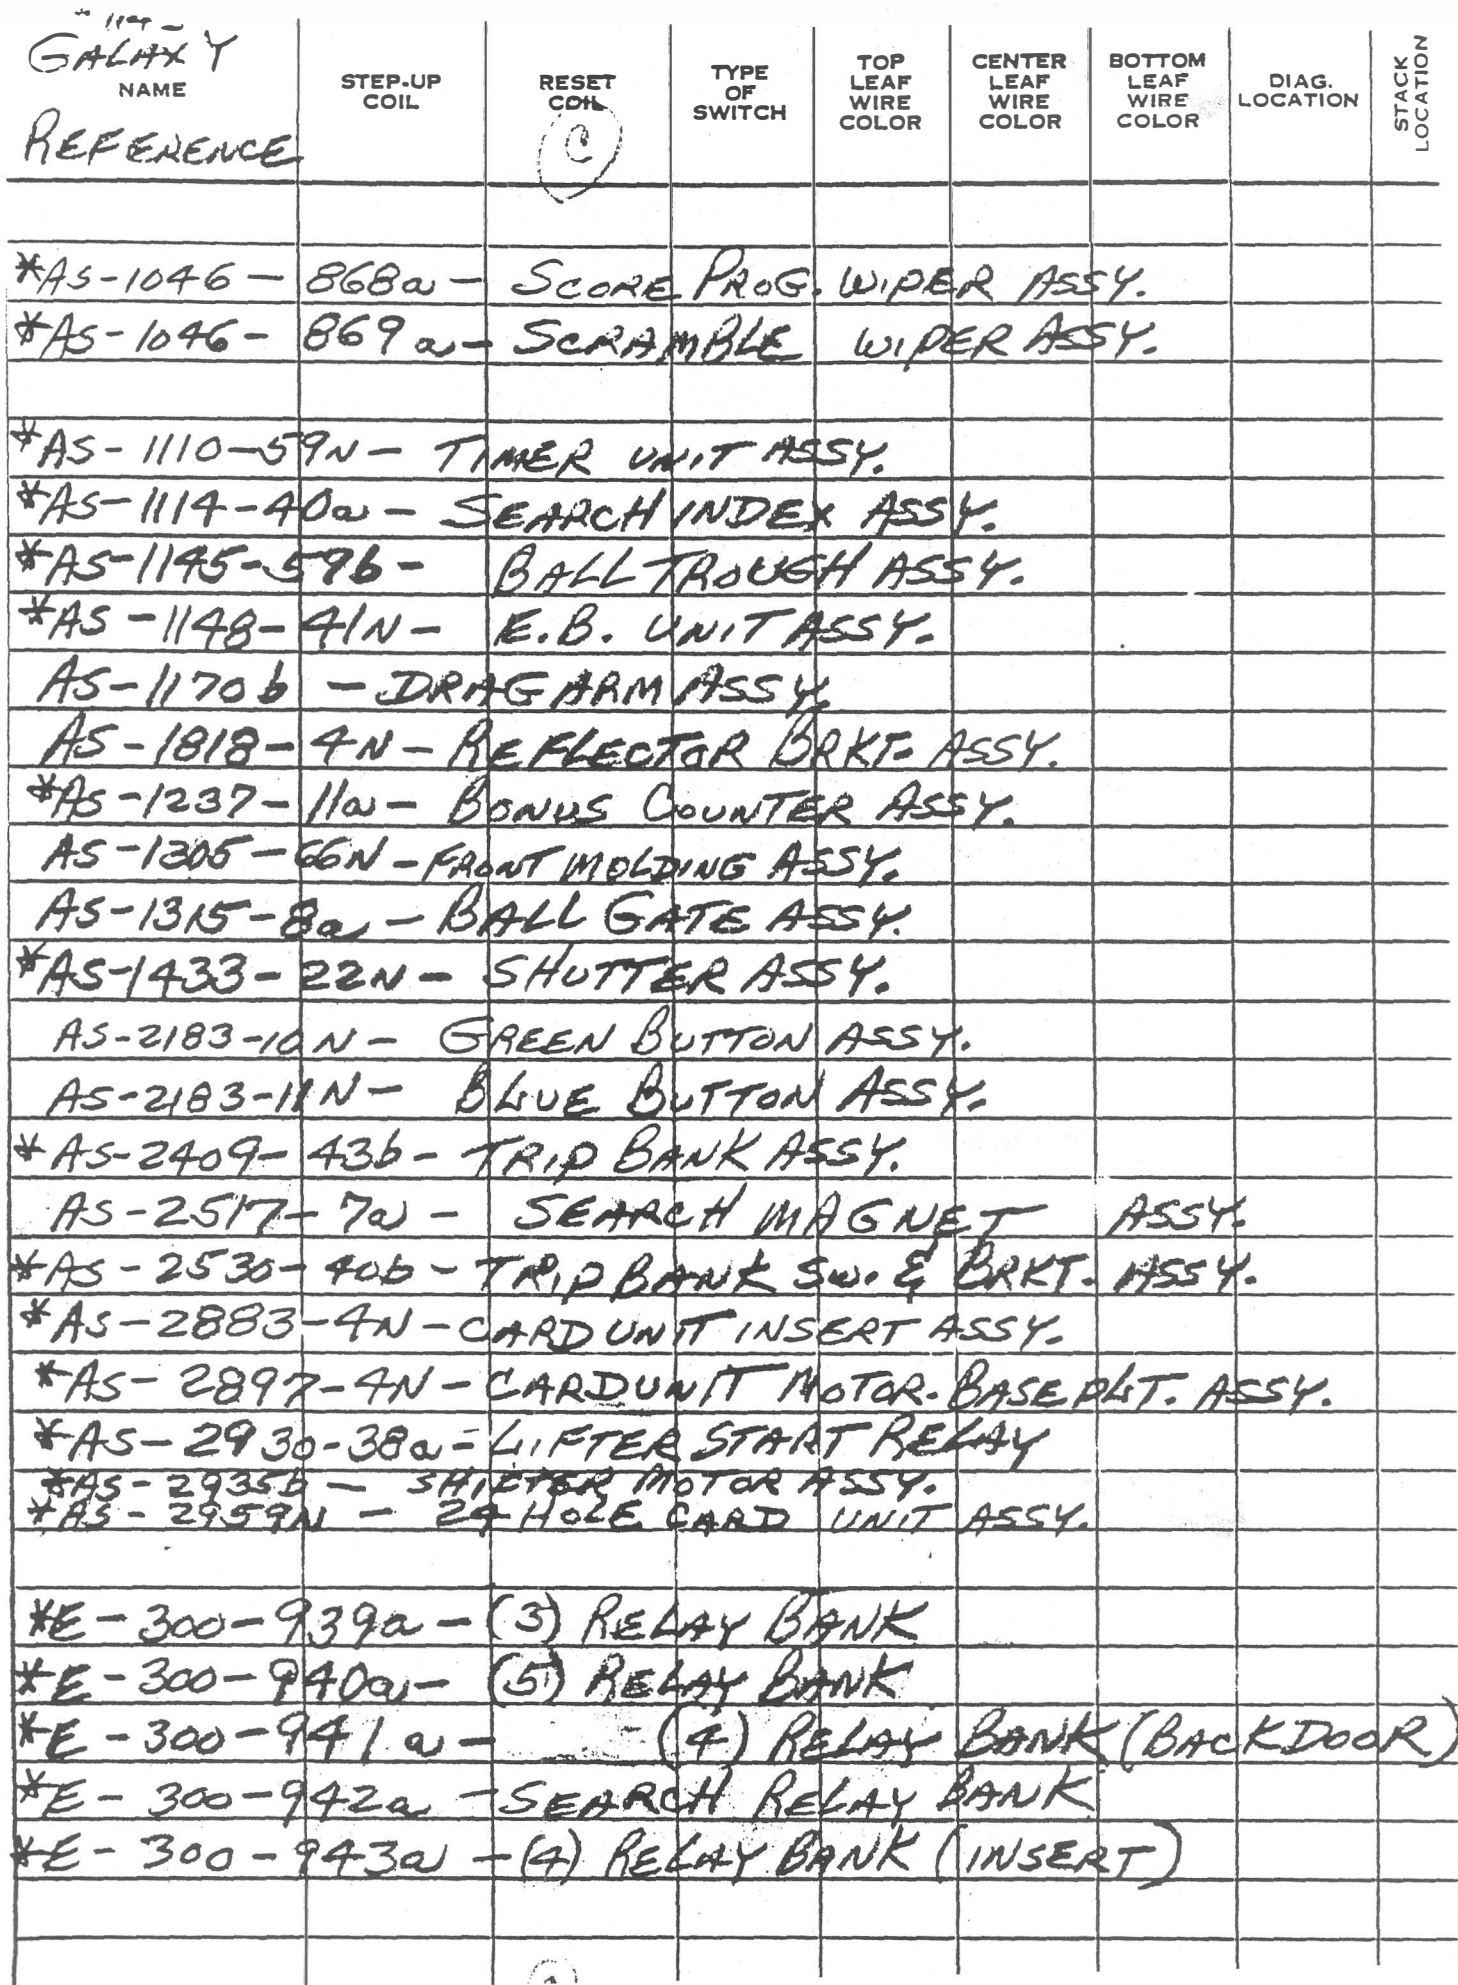 * 1114-
GALAXY
NAME
REFERENCE
STEP-UP COIL
RESET COIL
C
TYPE OF SWITCH
TOP LEAF WIRE COLOR
CENTER LEAF WIRE COLOR
BOTTOM LEAF WIRE COLOR
DIAG. LOCATION
STACK LOCATION
*AS-1046-868a-SCORE PROG. WIPER ASSY.
*AS-1046-869a-SCRAMBLE WIPER ASSY.
*AS-1110-59N-TIMER UNIT ASSY.
*AS-1114-40a-SEARCH INDEX ASSY.
*AS-1145-59b-BALL TROUGH ASSY.
*AS-1148-41N-E.B. UNIT ASSY.
AS-1170b-DRAG ARM ASSY.
AS-1818-4N-REFLECTOR BRKT. ASSY.
*AS-1237-11a-BONUS COUNTER ASSY.
AS-1305-66N-FRONT MOLDING ASSY.
AS-1315-8a-BALL GATE ASSY.
*AS-1433-22N-SHUTTER ASSY.
AS-2183-10N-GREEN BUTTON ASSY.
AS-2183-11N-BLUE BUTTON ASSY.
*AS-2409-43b-TRIP BANK ASSY.
AS-2517-7a-SEARCH MAGNET ASSY.
*AS-2530-40b-TRIP BANK SW. & BRKT. ASSY.
*AS-2883-4N-CARD UNIT INSERT ASSY.
*AS-2897-4N-CARD UNIT MOTOR-BASE PLT. ASSY.
*AS-2930-38a-LIFTER START RELAY
*AS-2935b-SHIFTER MOTOR ASSY.
*AS-2959N-24 HOLE CARD UNIT ASSY.
*E-300-939a-(3) RELAY BANK
*E-300-940a-(5) RELAY BANK
*E-300-941a-(4) RELAY BANK (BACK DOOR)
*E-300-942a-SEARCH RELAY BANK
*E-300-943a-(4) RELAY BANK (INSERT)